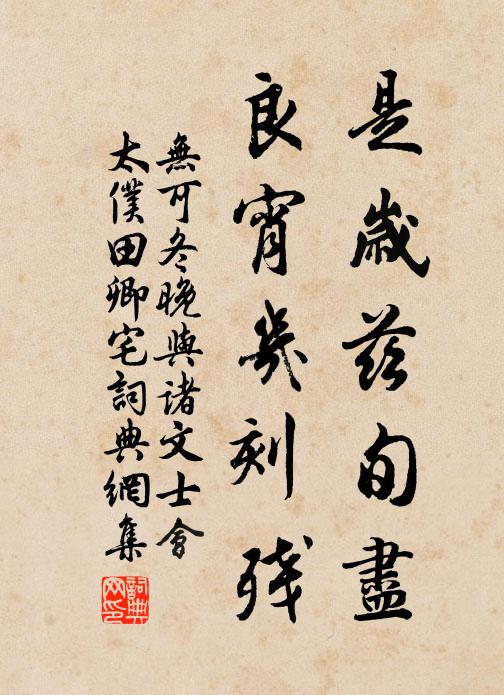 是歲茲旬盡
良宵幾刻殘
無可冬晚與諸文士會
太僕田卿宅詞典網集
詞典網印